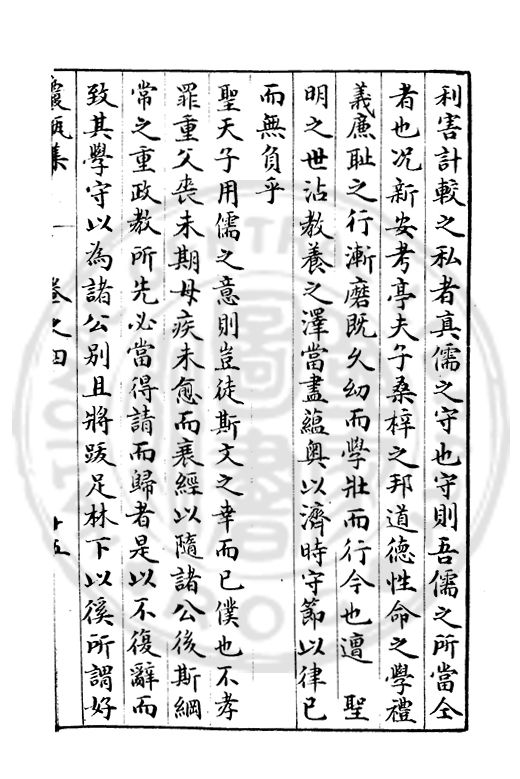 利害計較之私者真儒之守也守則吾儒之所當全
者也况新安考亭夫子桑梓之邦道德性命之學禮
義廉耻之行漸磨既久幼而學壯而行今也遭 聖
明之世沾教養之澤當盡蘊奥以濟時守節以律已
而無負乎
聖天子用儒之意則豈徒斯文之幸而已僕也不孝
罪重父喪未期母疾未愈而衰絰以隨諸公後斯綱
常之重政教所先必當得請而歸者是以不復辭而
致其學守以為諸公别且將跋足林下以徯所謂好
集 卷之四 十五